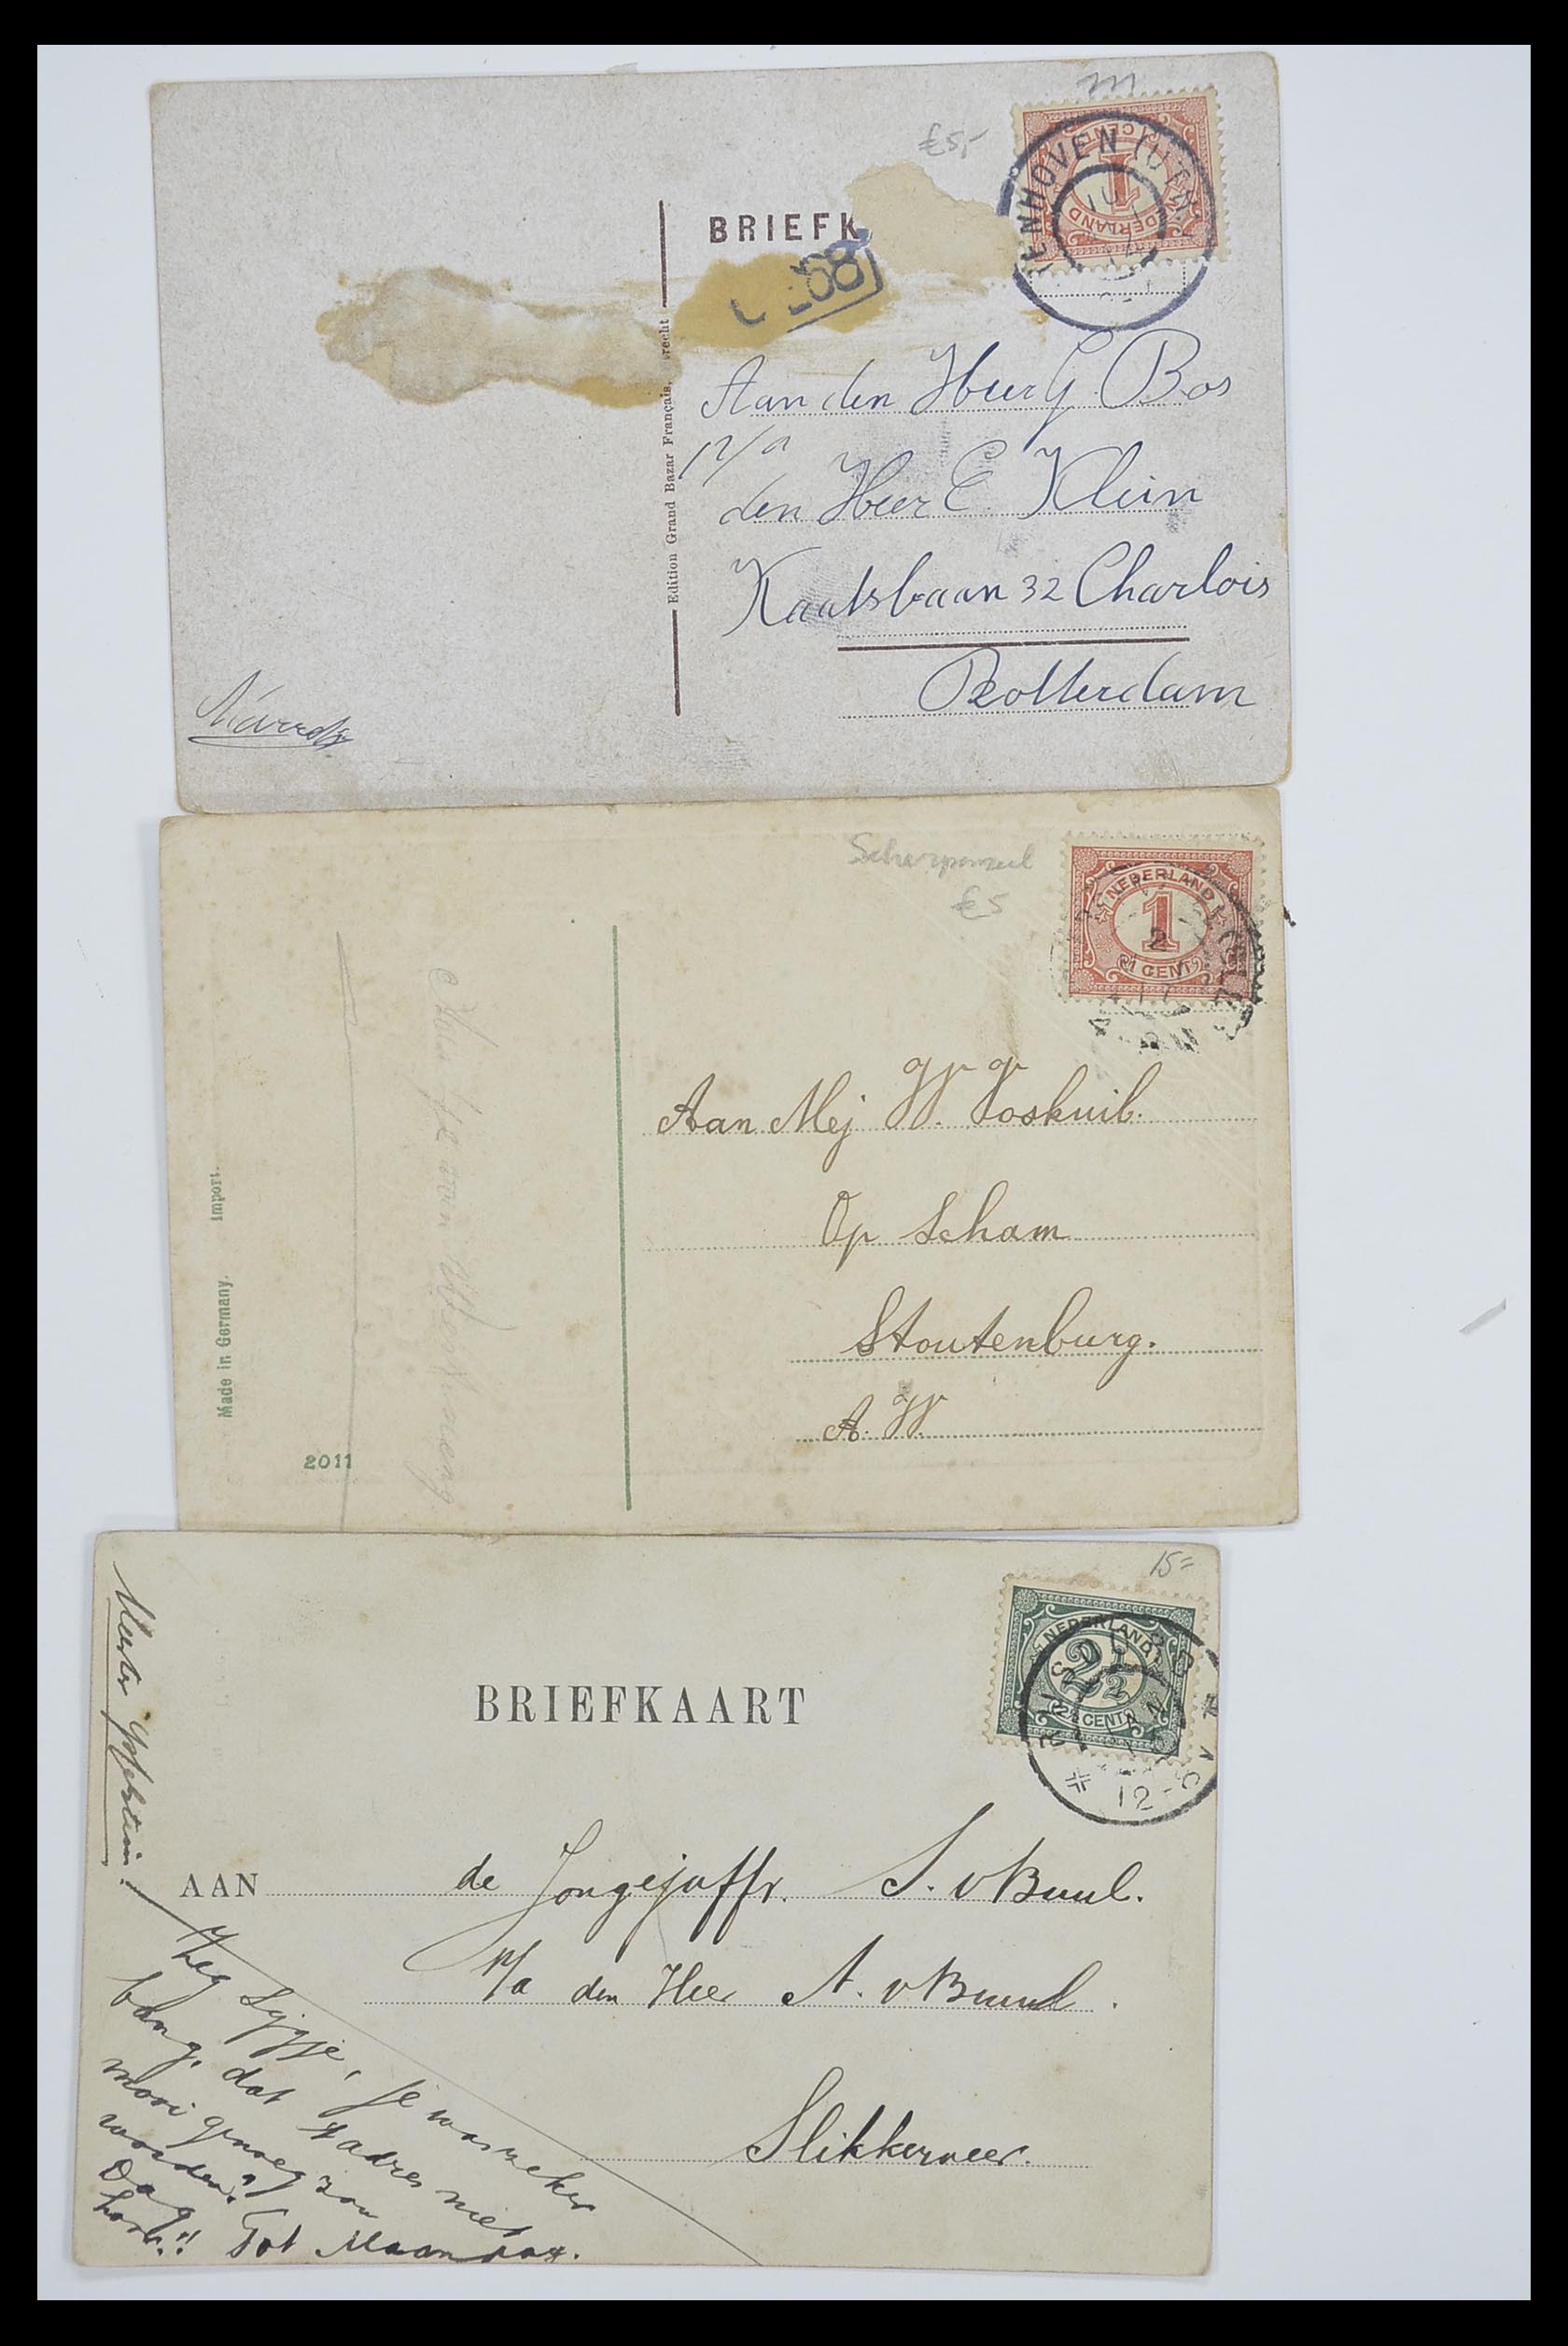 m
€5,-
NEDERLAND
1
1 CENT
ENHOVEN (UTR.)
BRIEFK
68
Edition Grand Bazar Français, trecht
Aan den Heer G. Bos
p/a
den Heer E. Klein
Kaatsbaan 32 Charlois
Rotterdam
Scherpenzeel
€5
NEDERLAND
1
1 CENT
Aan Mej W. Voskuil.
Op Scham
Stoutenburg.
A. W.
Import.
Made in Germany.
2011
15=
NEDERLAND
2½
2½ CENT
JAN
12-
BRIEFKAART
AAN de Jongejuffr. S. v Buul.
P/a den Heer A. v Buuul.
Slikkerveer.
Zeg Sijgje, je was zeker
bang, dat 't adres niet
mooi genoeg zou
worden?
Dag
hoor!! Tot Maandag.